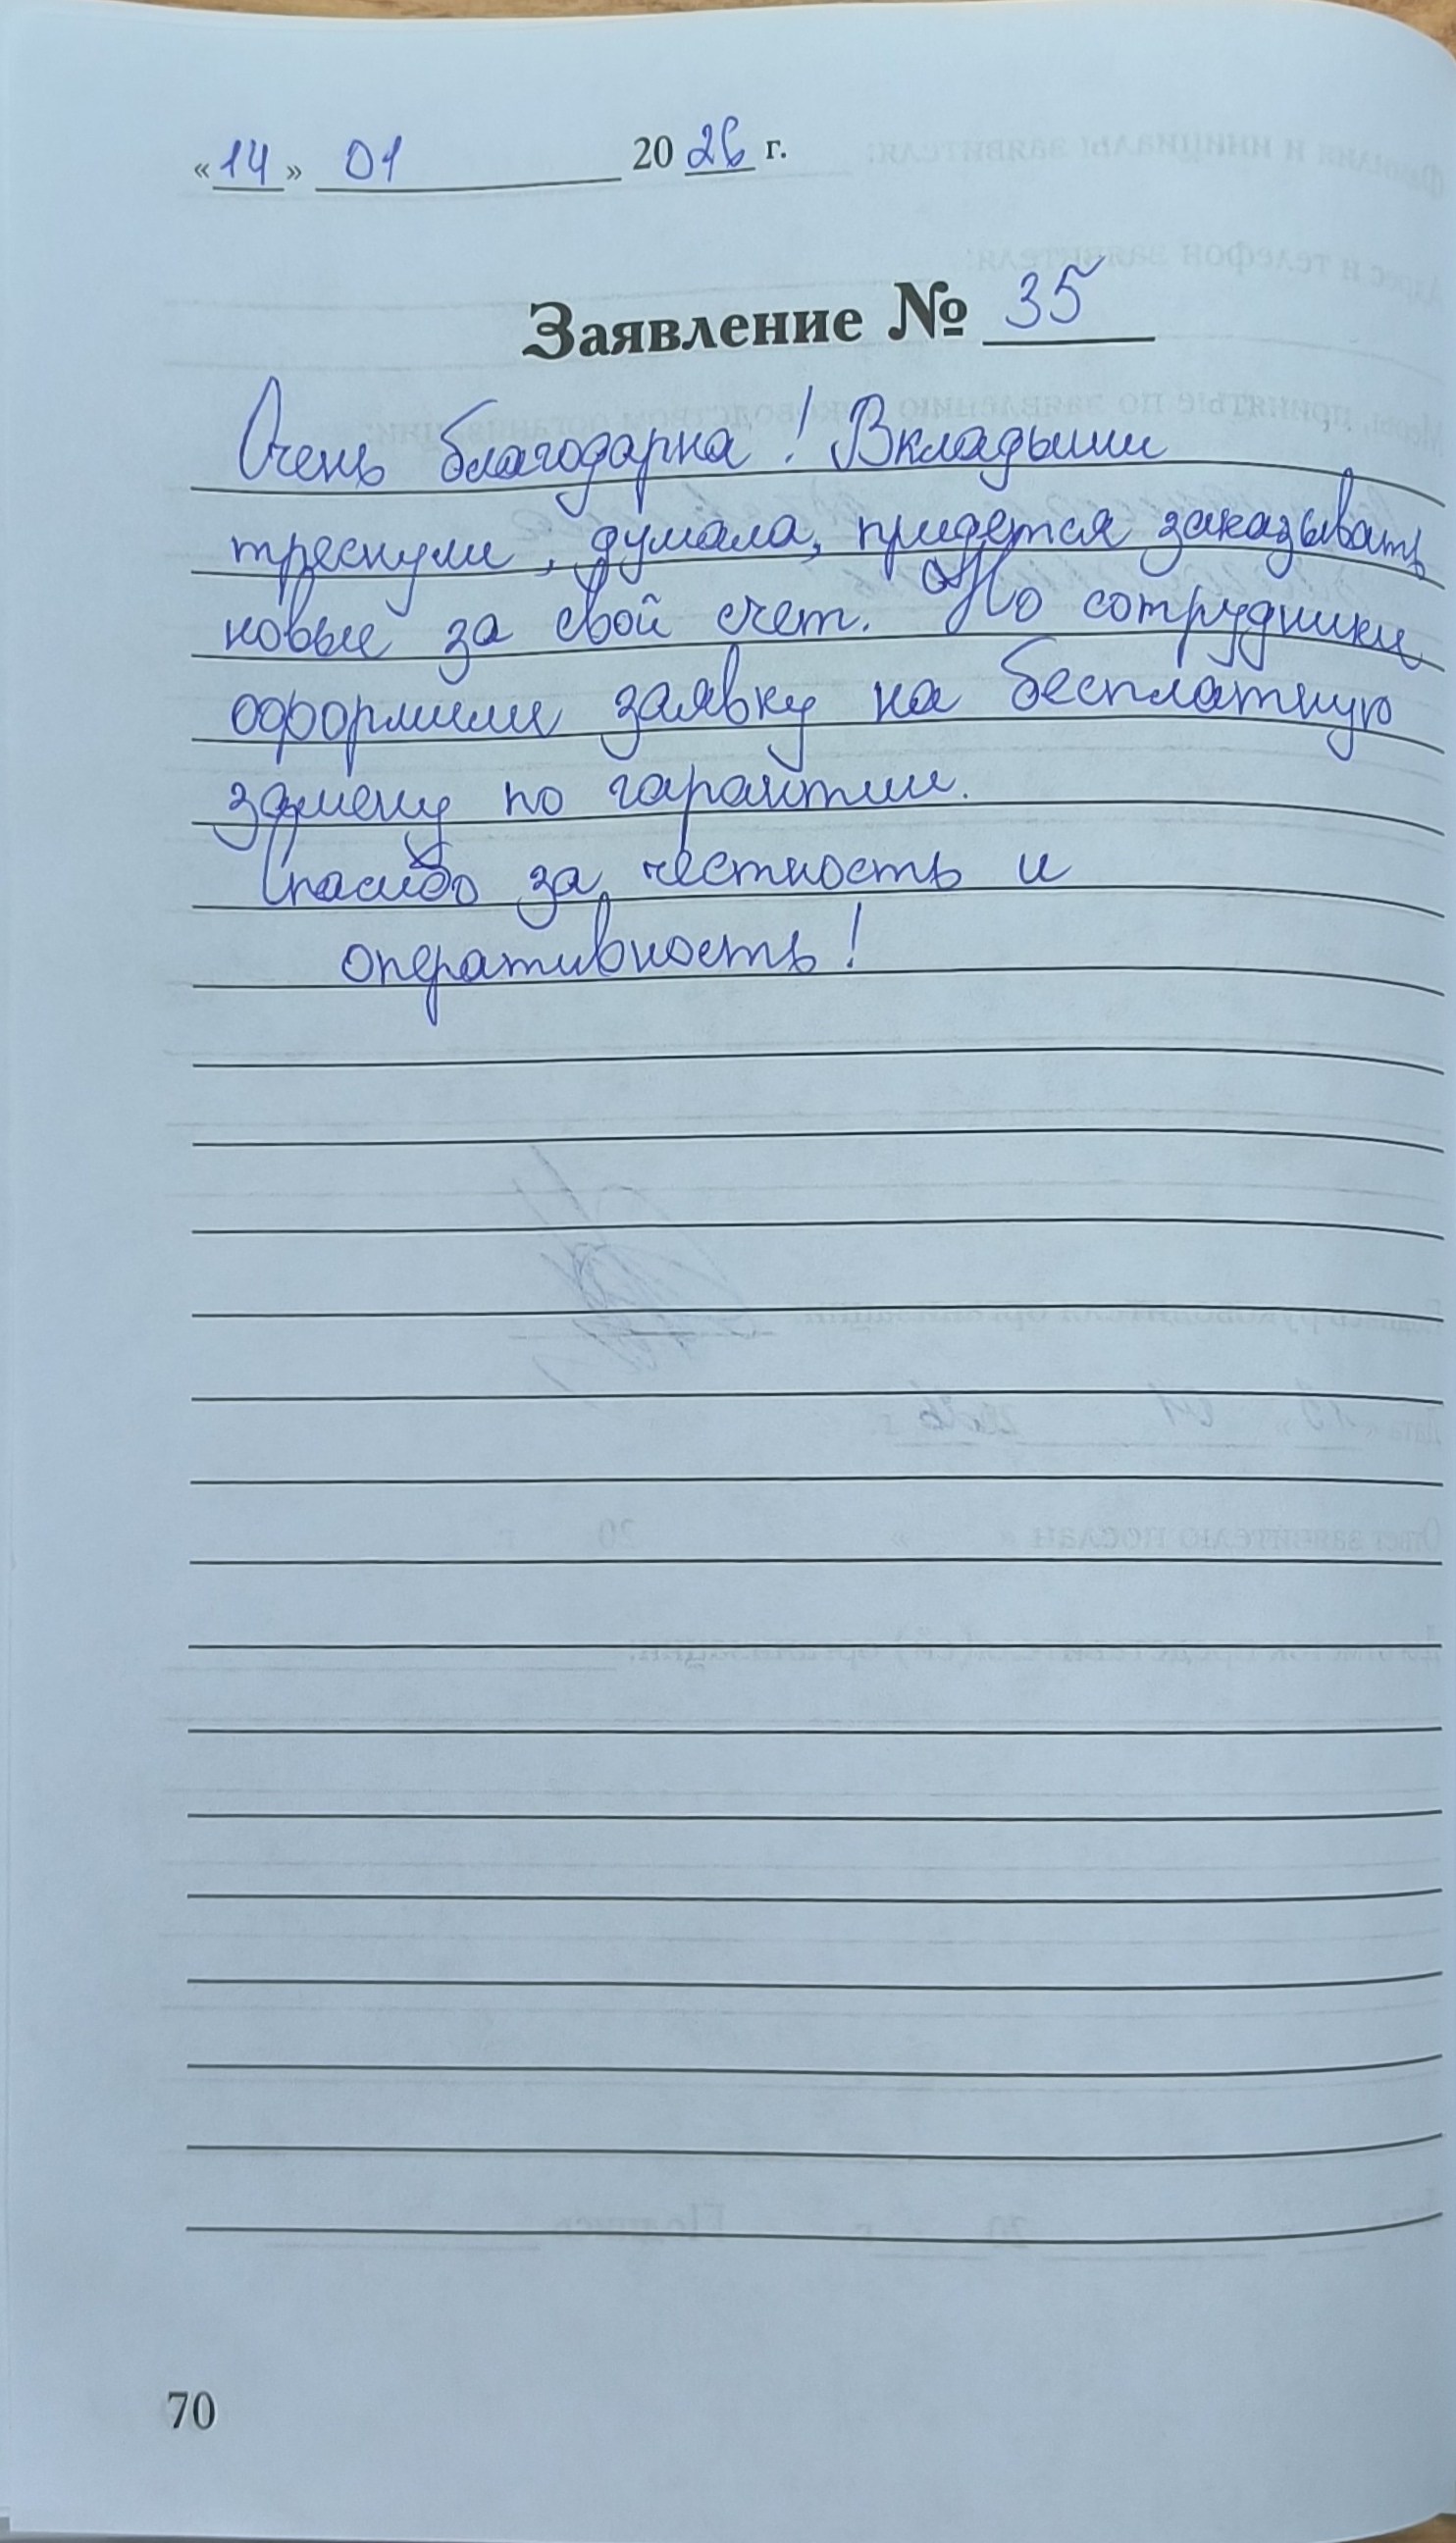 «14» 01 2026 г.
Заявление № 35
Очень благодарна! Вкладыши
треснули, думала, придется заказывать
новые за свой счет. Но сотрудники
оформили заявку на бесплатную
замену по гарантии.
Спасибо за честность и
оперативность!
70